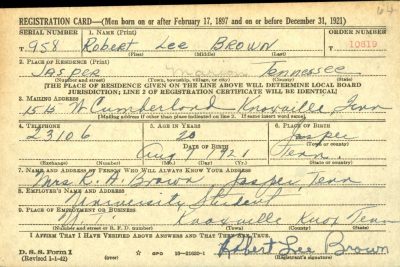 REGISTRATION CARD—(Men born on or after February 17, 1897 and on or before December 31, 1921)
SERIAL NUMBER 1. NAME (Print) ORDER NUMBER
T 958 Robert Lee BROWN 10819
(First) (Middle) (Last)
2. PLACE OF RESIDENCE (Print)
JASPER Tennessee
(Number and street) (Town, township, village, or city) (County) (State)
[THE PLACE OF RESIDENCE GIVEN ON THE LINE ABOVE WILL DETERMINE LOCAL BOARD
JURISDICTION; LINE 2 OF REGISTRATION CERTIFICATE WILL BE IDENTICAL]
3. MAILING ADDRESS
W Cumberland Knoxville, Tenn
[Mailing address if other than place indicated on line 2. If same insert word same]
4. TELEPHONE 5. AGE IN YEARS 6. PLACE OF BIRTH
23106 20 Jasper
DATE OF BIRTH (Town or county)
Aug 9 1921 Tenn.
(Exchange) (Number) (Mo.) (Day) (Yr.) (State or country)
7. NAME AND ADDRESS OF PERSON WHO WILL ALWAYS KNOW YOUR ADDRESS
Mrs Brown Jasper, Tenn
8. EMPLOYER'S NAME AND ADDRESS
University Student
9. PLACE OF EMPLOYMENT OR BUSINESS
Knoxville Knox Tenn
(Number and street or R. F. D. number) (Town) (County) (State)
I AFFIRM THAT I HAVE VERIFIED ABOVE ANSWERS AND THAT THEY ARE TRUE.
D. S. S. Form 1
(Revised 1-1-42) (over) GPO 16—21630-1 Robert Lee Brown